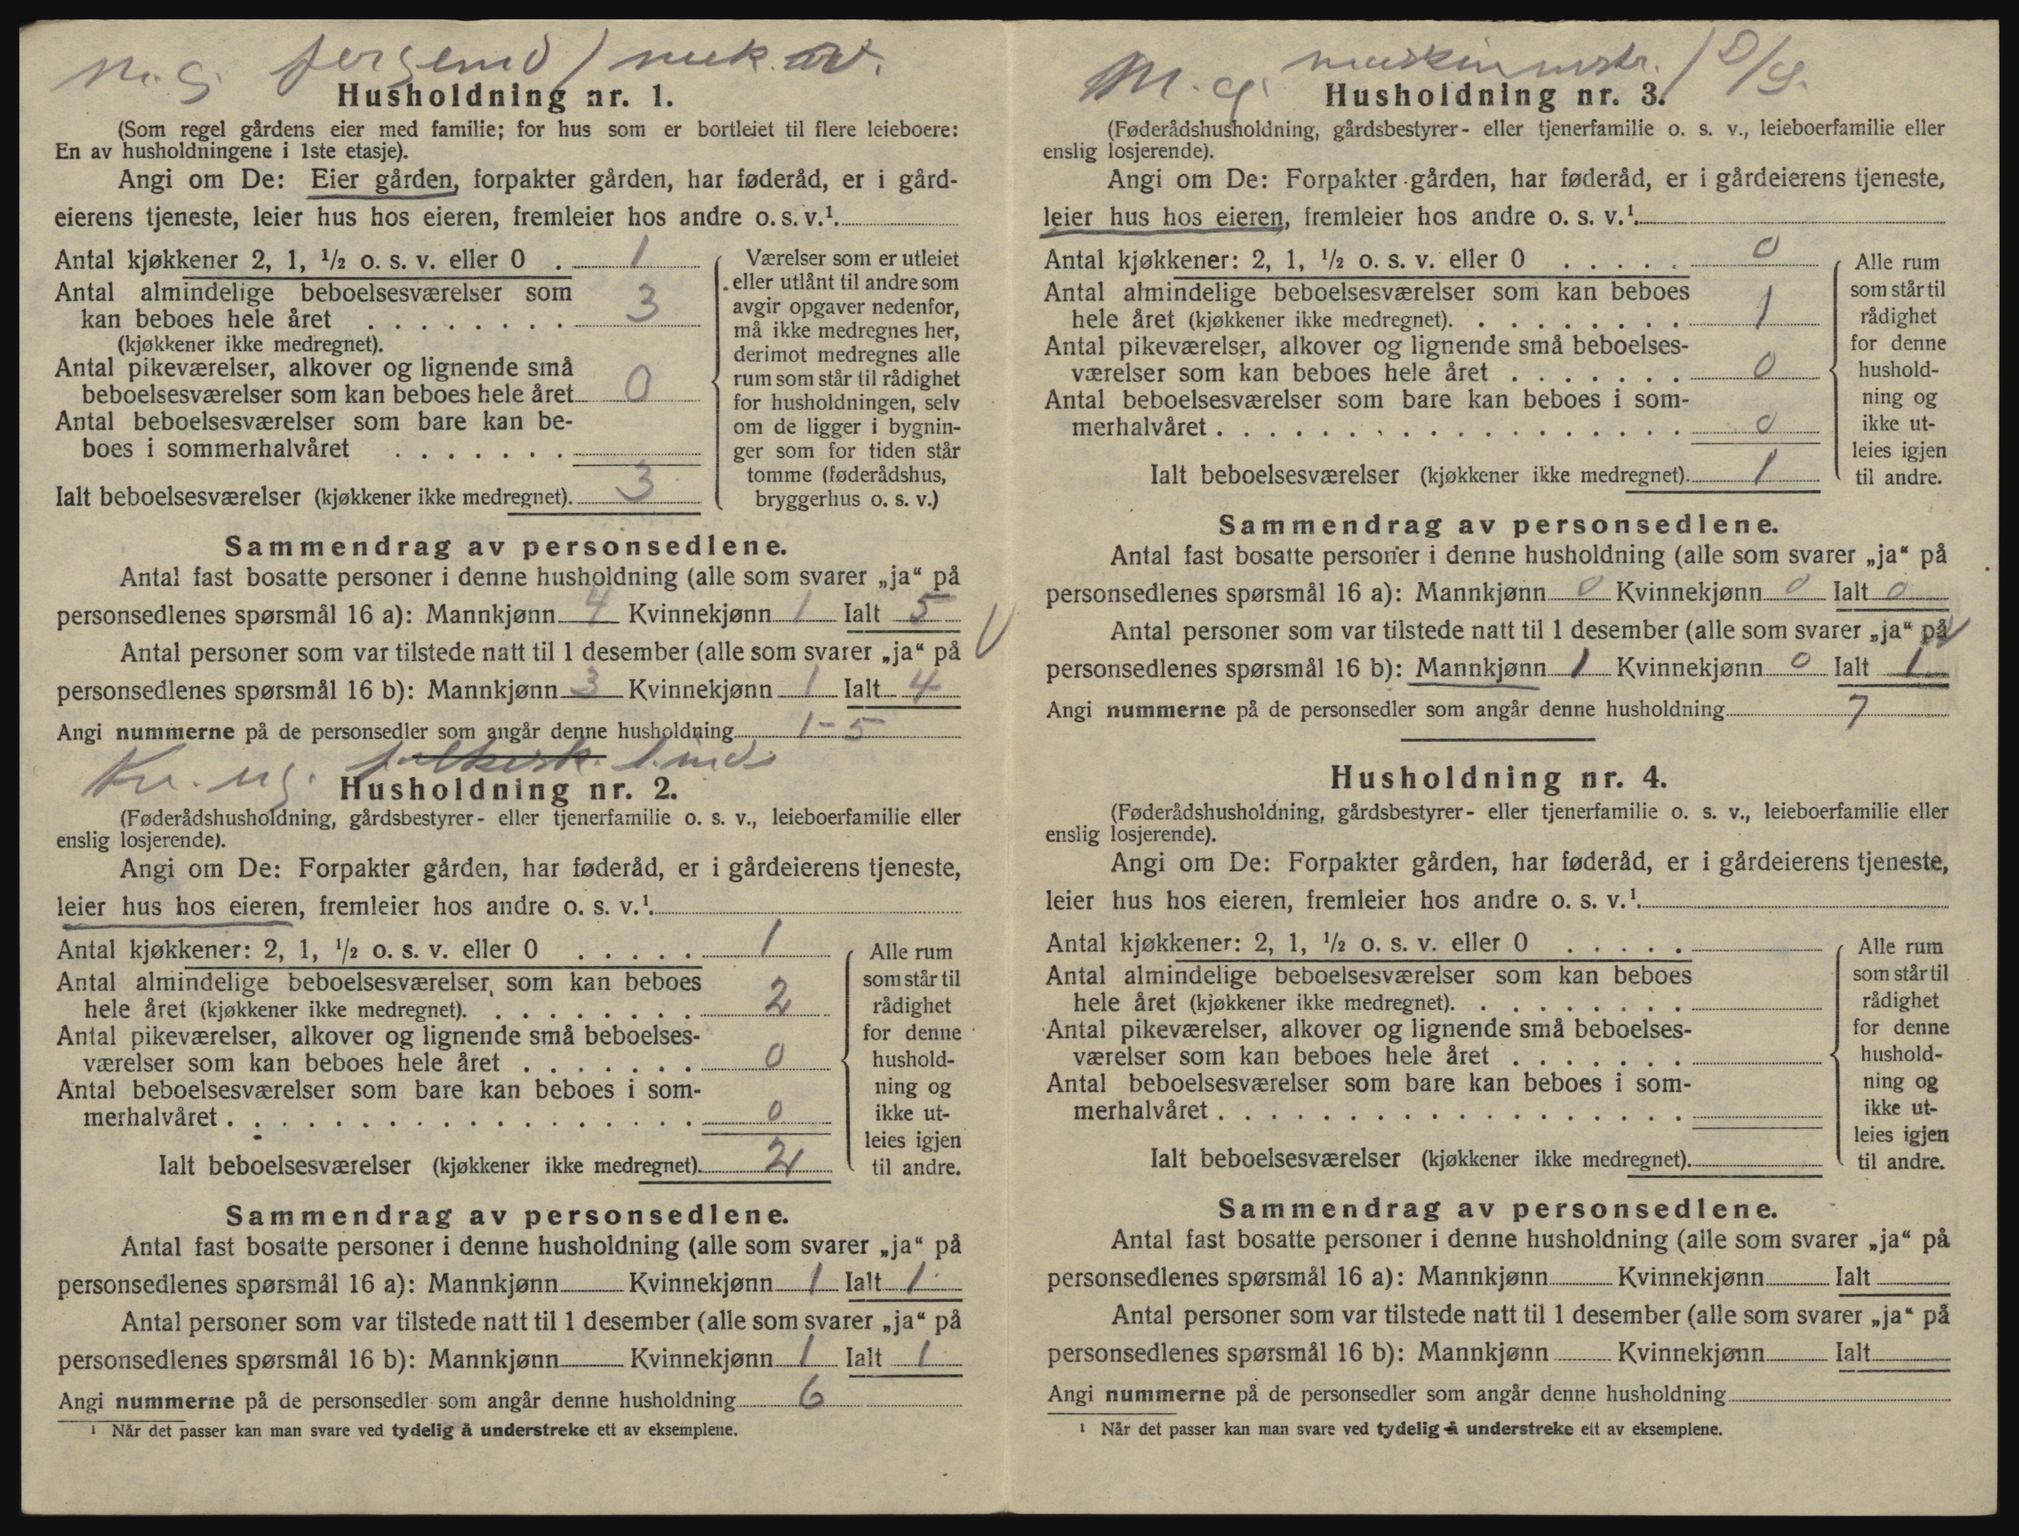 m. g.
Husholdning nr. 1.
(Som regel gårdens eier med familie; for hus som er bortleiet til flere leieboere:
En av husholdningene i 1ste etasje).
Angi om De: Eier gården, forpakter gården, har føderåd, er i gård-
eierens tjeneste, leier hus hos eieren, fremleier hos andre o. s. v.¹.
Antal kjøkkener 2, 1, ½ o. s. v. eller 0 . 1
Antal almindelige beboelsesværelser som
kan beboes hele året . . . . . . . . 3
(kjøkkener ikke medregnet).
Antal pikeværelser, alkover og lignende små
beboelsesværelser som kan beboes hele året 0
Antal beboelsesværelser som bare kan be-
boes i sommerhalvåret . . . . . . .
Ialt beboelsesværelser (kjøkkener ikke medregnet). 3
Værelser som er utleiet
eller utlånt til andre som
avgir opgaver nedenfor,
må ikke medregnes her,
derimot medregnes alle
rum som står til rådighet
for husholdningen, selv
om de ligger i bygnin-
ger som for tiden står
tomme (føderådshus,
bryggerhus o. s. v.)
Sammendrag av personsedlene.
Antal fast bosatte personer i denne husholdning (alle som svarer „ja“ på
personsedlenes spørsmål 16 a): Mannkjønn 4 Kvinnekjønn 1 Ialt 5
Antal personer som var tilstede natt til 1 desember (alle som svarer „ja“ på
personsedlenes spørsmål 16 b): Mannkjønn 3 Kvinnekjønn 1 Ialt 4
Angi nummerne på de personsedler som angår denne husholdning 1-5
Kv. ug.
Husholdning nr. 2.
(Føderådshusholdning, gårdsbestyrer- eller tjenerfamilie o. s. v., leieboerfamilie eller
enslig losjerende).
Angi om De: Forpakter gården, har føderåd, er i gårdeierens tjeneste,
leier hus hos eieren, fremleier hos andre o. s. v.¹.
Antal kjøkkener: 2, 1, ½ o. s. v. eller 0 . . . . . 1
Antal almindelige beboelsesværelser som kan beboes
hele året (kjøkkener ikke medregnet). . . . . . . . . 2
Antal pikeværelser, alkover og lignende små beboelses-
værelser som kan beboes hele året . . . . . . . 0
Antal beboelsesværelser som bare kan beboes i som-
merhalvåret . . . . . . . . . . . . . . . . . . 0
Ialt beboelsesværelser (kjøkkener ikke medregnet). 2
Alle rum
som står til
rådighet
for denne
hushold-
ning og
ikke ut-
leies igjen
til andre.
Sammendrag av personsedlene.
Antal fast bosatte personer i denne husholdning (alle som svarer „ja“ på
personsedlenes spørsmål 16 a): Mannkjønn Kvinnekjønn 1 Ialt 1
Antal personer som var tilstede natt til 1 desember (alle som svarer „ja“ på
personsedlenes spørsmål 16 b): Mannkjønn Kvinnekjønn 1 Ialt 1
Angi nummerne på de personsedler som angår denne husholdning 6
¹ Når det passer kan man svare ved tydelig å understreke ett av eksemplene.
M. g. maskinmstr.
Husholdning nr. 3.
(Føderådshusholdning, gårdsbestyrer- eller tjenerfamilie o. s. v., leieboerfamilie eller
enslig losjerende).
Angi om De: Forpakter gården, har føderåd, er i gårdeierens tjeneste,
leier hus hos eieren, fremleier hos andre o. s. v.¹.
Antal kjøkkener: 2, 1, ½ o. s. v. eller 0 . . . . . 0
Antal almindelige beboelsesværelser som kan beboes
hele året (kjøkkener ikke medregnet). . . . . . . . . 1
Antal pikeværelser, alkover og lignende små beboelses-
værelser som kan beboes hele året . . . . . . . 0
Antal beboelsesværelser som bare kan beboes i som-
merhalvåret . . . . . . . . . . . . . . . . . . 0
Ialt beboelsesværelser (kjøkkener ikke medregnet). 1
Alle rum
som står til
rådighet
for denne
hushold-
ning og
ikke ut-
leies igjen
til andre.
Sammendrag av personsedlene.
Antal fast bosatte personer i denne husholdning (alle som svarer „ja“ på
personsedlenes spørsmål 16 a): Mannkjønn 0 Kvinnekjønn 0 Ialt 0
Antal personer som var tilstede natt til 1 desember (alle som svarer „ja“ på
personsedlenes spørsmål 16 b): Mannkjønn 1 Kvinnekjønn 0 Ialt 1
Angi nummerne på de personsedler som angår denne husholdning 7
Husholdning nr. 4.
(Føderådshusholdning, gårdsbestyrer- eller tjenerfamilie o. s. v., leieboerfamilie eller
enslig losjerende).
Angi om De: Forpakter gården, har føderåd, er i gårdeierens tjeneste,
leier hus hos eieren, fremleier hos andre o. s. v.¹.
Antal kjøkkener: 2, 1, ½ o. s. v. eller 0 . . . . .
Antal almindelige beboelsesværelser som kan beboes
hele året (kjøkkener ikke medregnet). . . . . . . . .
Antal pikeværelser, alkover og lignende små beboelses-
værelser som kan beboes hele året . . . . . . .
Antal beboelsesværelser som bare kan beboes i som-
merhalvåret . . . . . . . . . . . . . . . . . .
Ialt beboelsesværelser (kjøkkener ikke medregnet).
Alle rum
som står til
rådighet
for denne
hushold-
ning og
ikke ut-
leies igjen
til andre.
Sammendrag av personsedlene.
Antal fast bosatte personer i denne husholdning (alle som svarer „ja“ på
personsedlenes spørsmål 16 a): Mannkjønn Kvinnekjønn Ialt
Antal personer som var tilstede natt til 1 desember (alle som svarer „ja“ på
personsedlenes spørsmål 16 b): Mannkjønn Kvinnekjønn Ialt
Angi nummerne på de personsedler som angår denne husholdning
¹ Når det passer kan man svare ved tydelig å understreke ett av eksemplene.